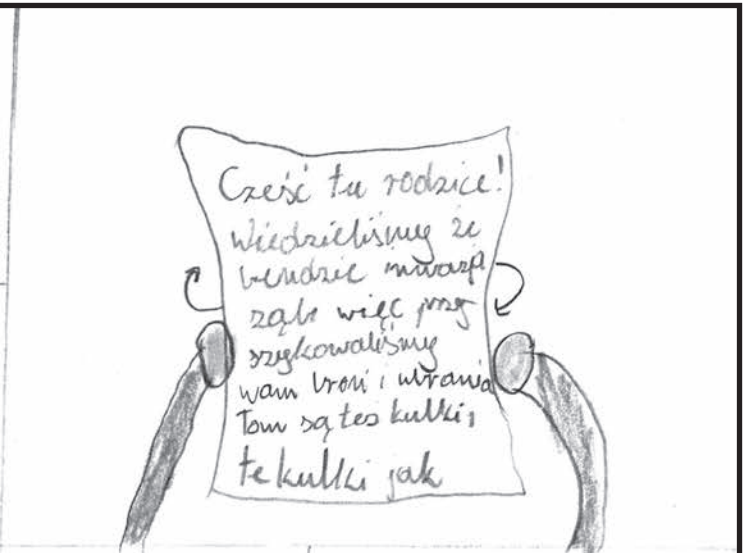 Cześć tu rodzice!
Wiedzieliśmy że
bendzie inwazja
ząb więc przy
szykowaliśmy
wam broń i ubrania
Tom są tes kulki,
te kulki jak